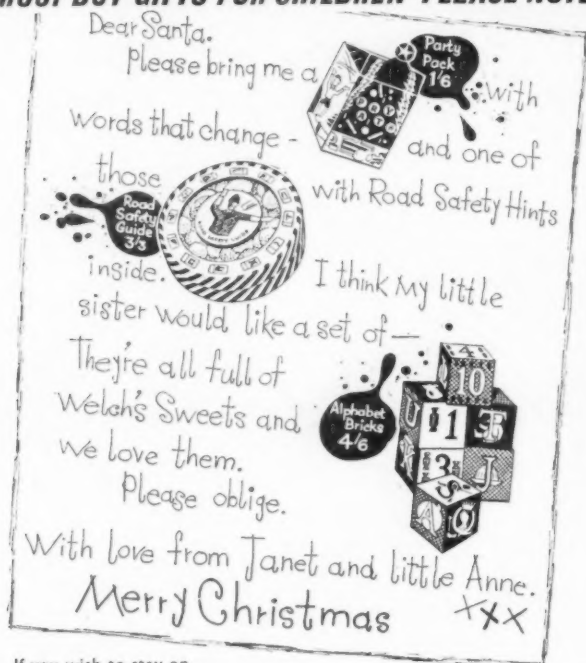 MUST BUY GIFTS FOR CHILDREN PLEASE NOTE
Dear Santa.
Please bring me a
Party
Pack
1'6
with
words that change -
and one of
those
Road
Safety
Guide
3/3
with Road Safety Hints
inside.
I think My little
sister would like a set of —
They're all full of
Welch's Sweets and
we love them.
Please oblige.
Alphabet
Bricks
4/6
With love from Janet and little Anne.
Merry Christmas
XXX
If you wish to stay on